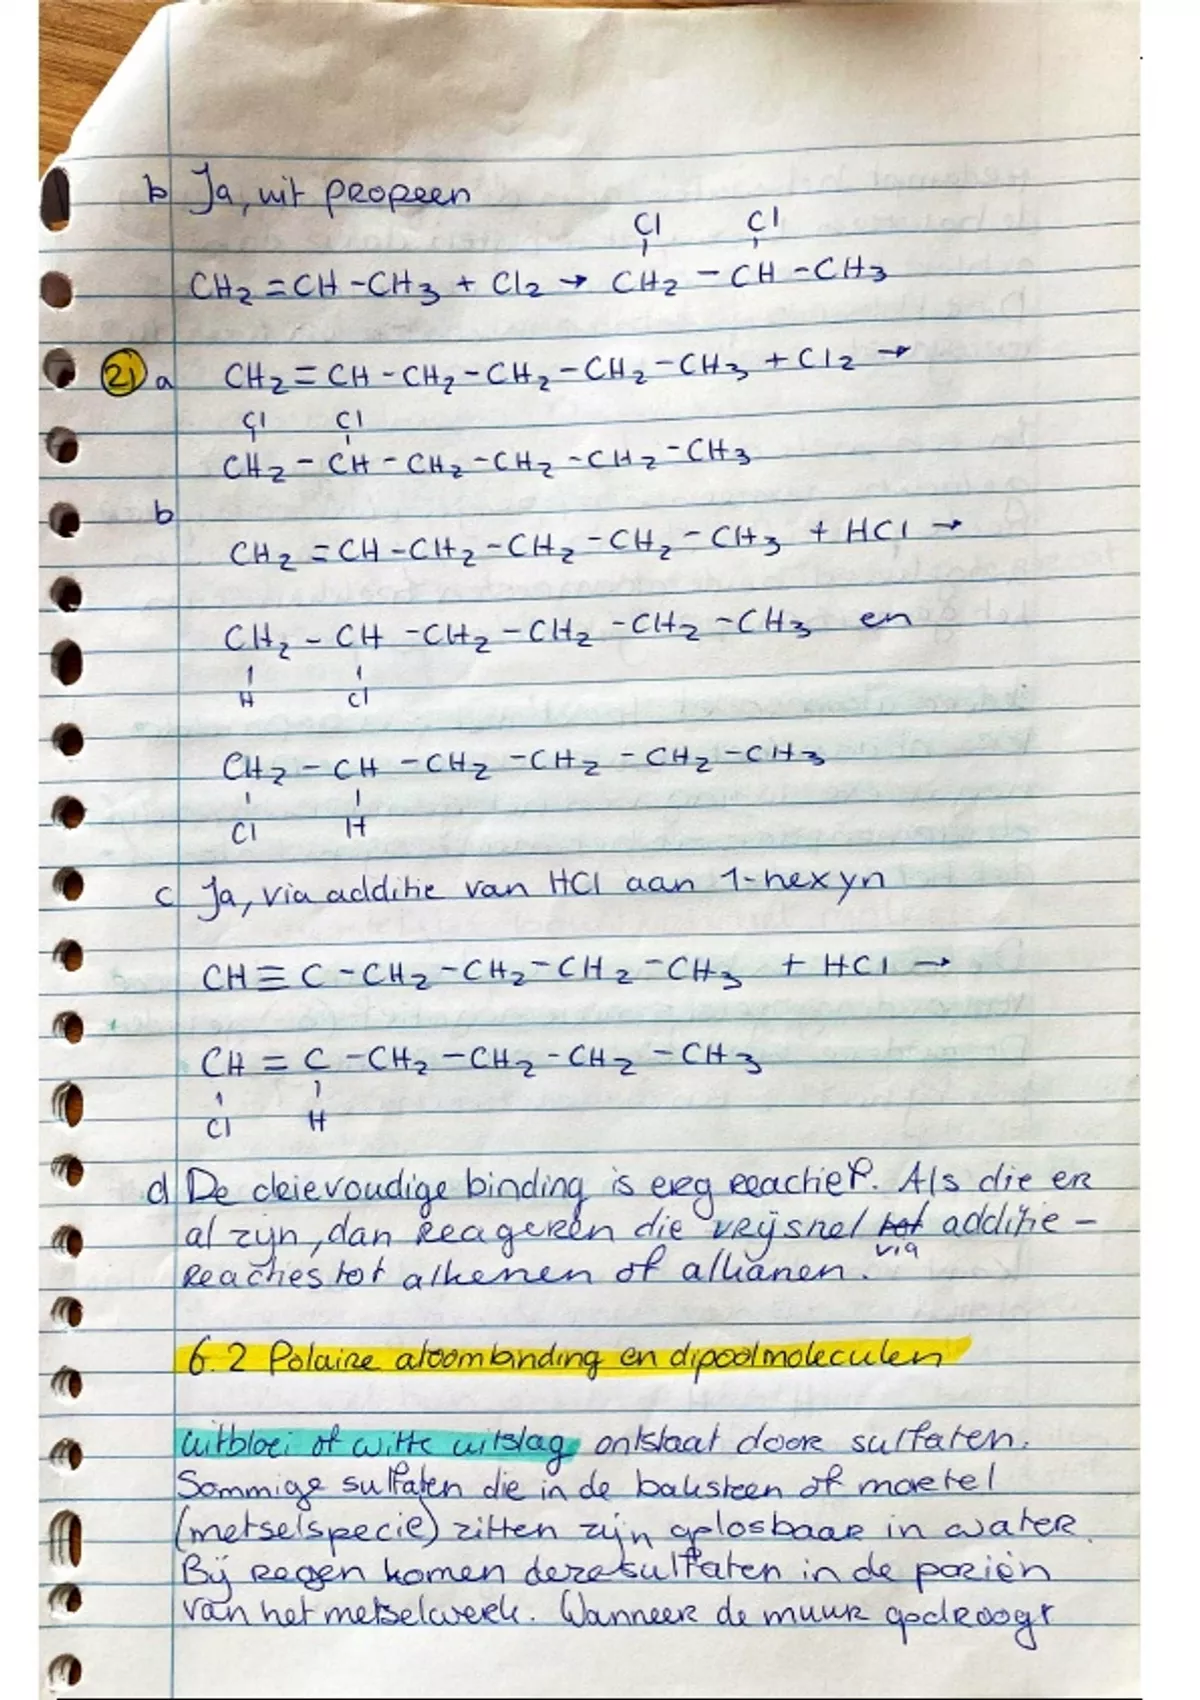 b Ja, uit propeen
Cl Cl
CH2 = CH - CH3 + Cl2 → CH2 - CH - CH3
21 a CH2 = CH - CH2 - CH2 - CH2 - CH3 + Cl2 →
Cl Cl
CH2 - CH - CH2 - CH2 - CH2 - CH3
b
CH2 = CH - CH2 - CH2 - CH2 - CH3 + HCl →
CH2 - CH - CH2 - CH2 - CH2 - CH3 en
H Cl
CH2 - CH - CH2 - CH2 - CH2 - CH3
Cl H
c Ja, via additie van HCl aan 1-hexyn
CH ≡ C - CH2 - CH2 - CH2 - CH3 + HCl →
CH = C - CH2 - CH2 - CH2 - CH3
Cl H
d De drievoudige binding is erg reactief. Als die er
al zijn, dan reageren die vrij snel tot additie -
via
reacties tot alkenen of alkanen.
6.2 Polaire atoombinding en dipoolmoleculen
Uitbloei of witte uitslag ontstaat door sulfaten.
Sommige sulfaten die in de baksteen of mortel
(metselspecie) zitten zijn oplosbaar in water.
Bij regen komen deze sulfaten in de poriën
van het metselwerk. Wanneer de muur opdroogt